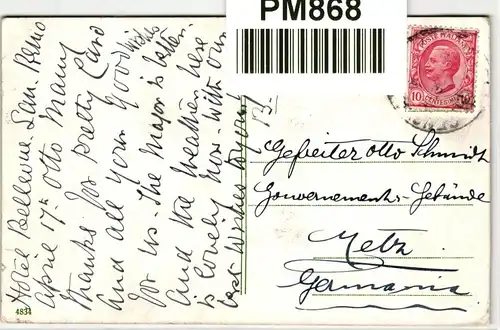 PM868
Hotel Bellevue San Remo
April 17th Otto Many
thanks for pretty Card
and all your good wishes
for us - The Major is better
and the weather here
is lovely now - With our
best wishes to you
POSTE ITALIANE
10
CENTESIMI
Gefreiter Otto Schmidt
Gouvernements-Gebäude
Metz
Germania
4834